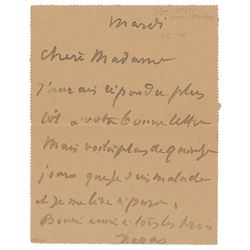 Mardi
Chère Madame
J'aurais répondu plus
tôt à votre bonne lettre
Mais voilà plus de quinze
jours que je suis malade
et je me lève à peine.
Bonne amie à tous les trois
Degas